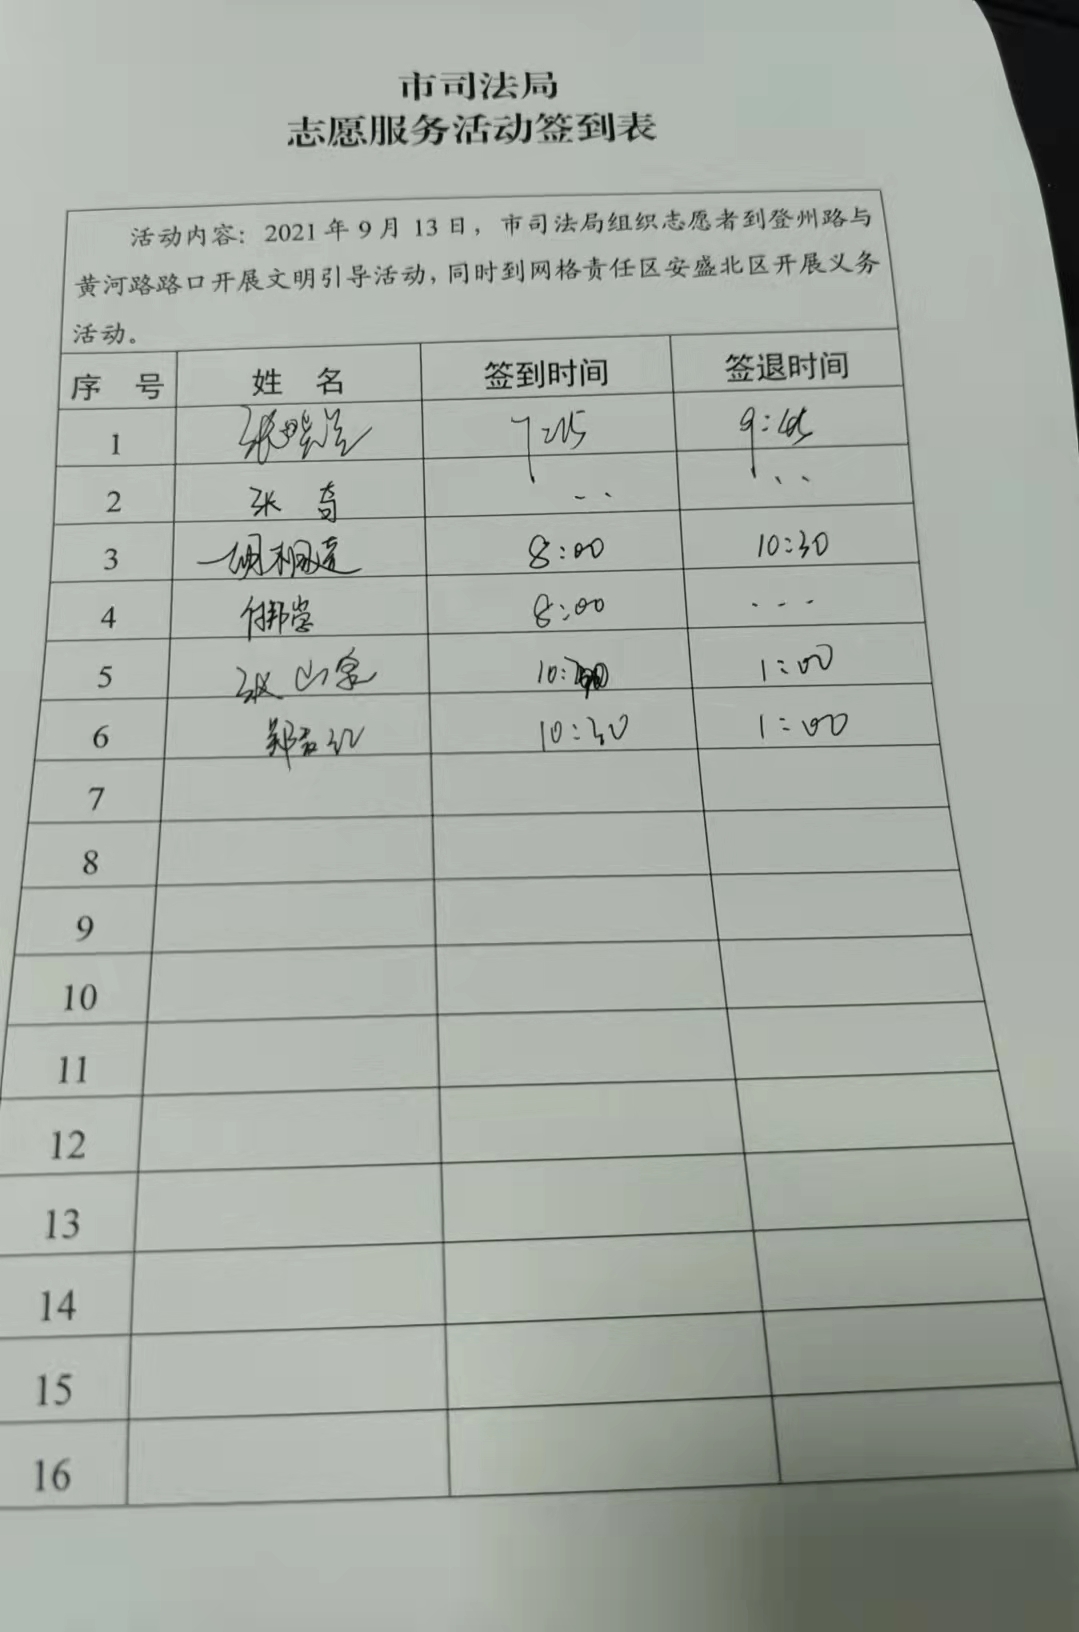 市司法局
志愿服务活动签到表
活动内容：2021年9月13日，市司法局组织志愿者到登州路与
黄河路路口开展文明引导活动，同时到网格责任区安盛北区开展义务
活动。
序 号 姓 名 签到时间 签退时间
1 张晓 9:45
2 张 奇 ·· ··
3 胡 8:00 10:30
4 付邦 8:00 ···
5 张 10: 1:00
6 郑 10:30 1:00
7
8
9
10
11
12
13
14
15
16